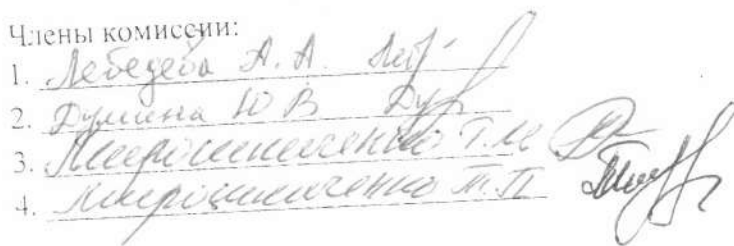 Члены комиссии:
1. Лебедева А. А.
2. Душина Ю В
3. Мирошниченко Г. М
4. Мирошниченко Т. П